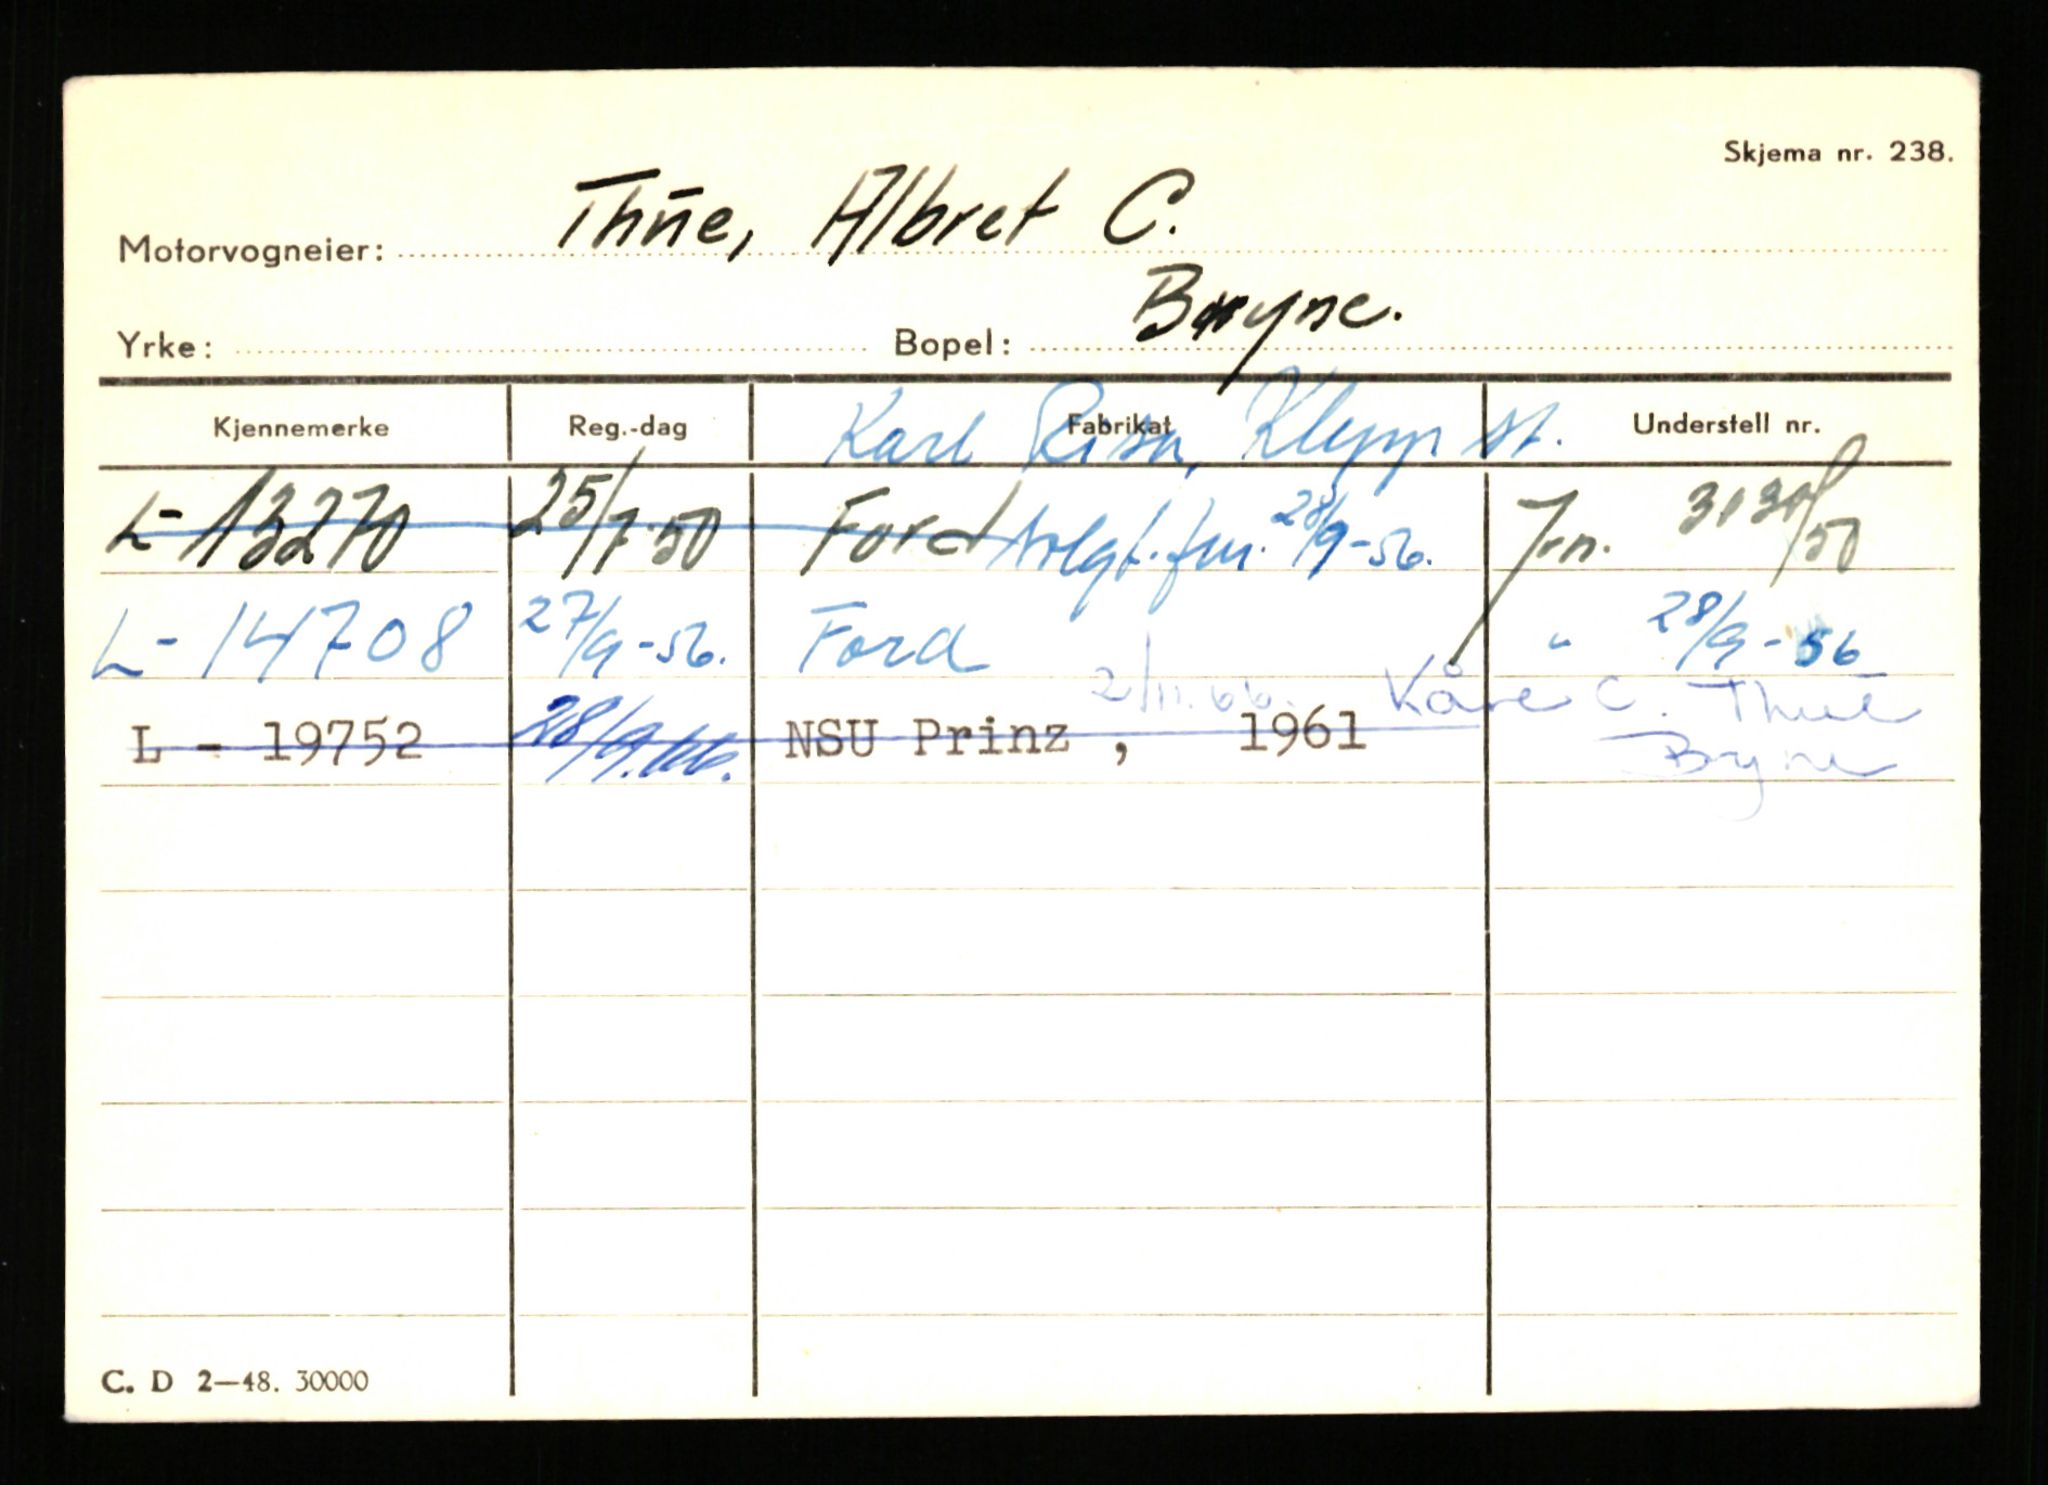 Skjema nr. 238.
Motorvogneier: Thue, Albret C.
Yrke: Bopel: Bryne.
Kjennemerke Reg.-dag Fabrikat Understell nr.
Karl Risa, Klepp st.
L-13270 25/7-50 Ford solgt. 28/9-56. Jrn. 50
L-14708 27/9-56. Ford " 28/9-56
2/11.66. Kåre C. Thue
L - 19752 28/9.66. NSU Prinz , 1961 Bryne
C. D 2—48. 30000